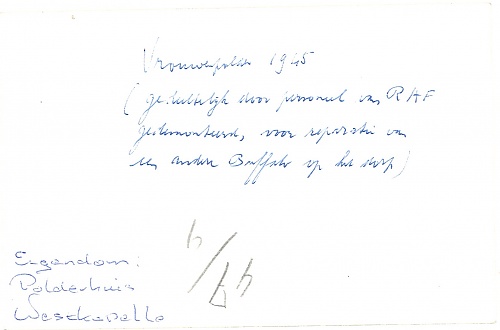 Vrouwenpolder 1945
(gedeeltelijk door personeel van RAF
gedemonteerd, voor reparatie van
een andere Buffalo op het dorp)
Eigendom:
Polderhuis
Westkapelle